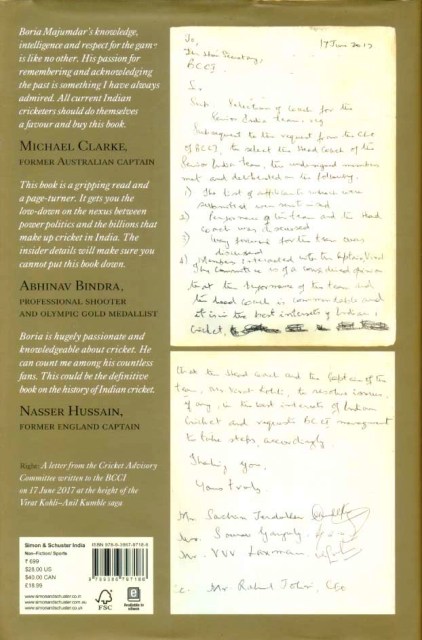 Boria Majumdar's knowledge,
intelligence and respect for the game
is like no other. His passion for
remembering and acknowledging
the past is something I have always
admired. All current Indian
cricketers should do themselves
a favour and buy this book.
MICHAEL CLARKE,
FORMER AUSTRALIAN CAPTAIN
This book is a gripping read and
a page-turner. It gets you the
low-down on the nexus between
power politics and the billions that
make up cricket in India. The
insider details will make sure you
cannot put this book down.
ABHINAV BINDRA,
PROFESSIONAL SHOOTER
AND OLYMPIC GOLD MEDALLIST
Boria is hugely passionate and
knowledgeable about cricket. He
can count me among his countless
fans. This could be the definitive
book on the history of Indian cricket.
NASSER HUSSAIN,
FORMER ENGLAND CAPTAIN
Right: A letter from the Cricket Advisory
Committee written to the BCCI
on 17 June 2017 at the height of the
Virat Kohli–Anil Kumble saga
Simon & Schuster India
Non-Fiction/ Sports
₹ 699
$25.00 US
$40.00 CAN
£18.99
www.simonandschuster.co.in
www.simonandschuster.com.au
www.simonandschuster.co.uk
FSC
e
Available in
ebook
To,
17 June 2017
The Hon Secretary,
BCCI
Sub: Selection of Coach for the
Senior India Team
Subsequent to the request from the CEO
of BCCI, to select the Head Coach of the
Senior India team, the undersigned members
met and deliberated on the following.
1) The list of applicants which were
2) Performance of the team and the Head
Coach was discussed
3) way forward for the team was
discussed
4) Members interacted with the Captain, Virat
This Committee is of a considered opinion
that the performance of the team and
the head coach is commendable and
it is in the best interests of Indian
Cricket,
that the Head Coach and the Captain of the
team, to resolve issues,
if any, in the best interests of Indian
Cricket and request BCCI management
to take steps, accordingly.
Thanking you,
Yours truly,
Mr. Sachin Tendulkar
Mr. Sourav Ganguly
Mr. VVS Laxman
Mr. Rahul Johri, CEO